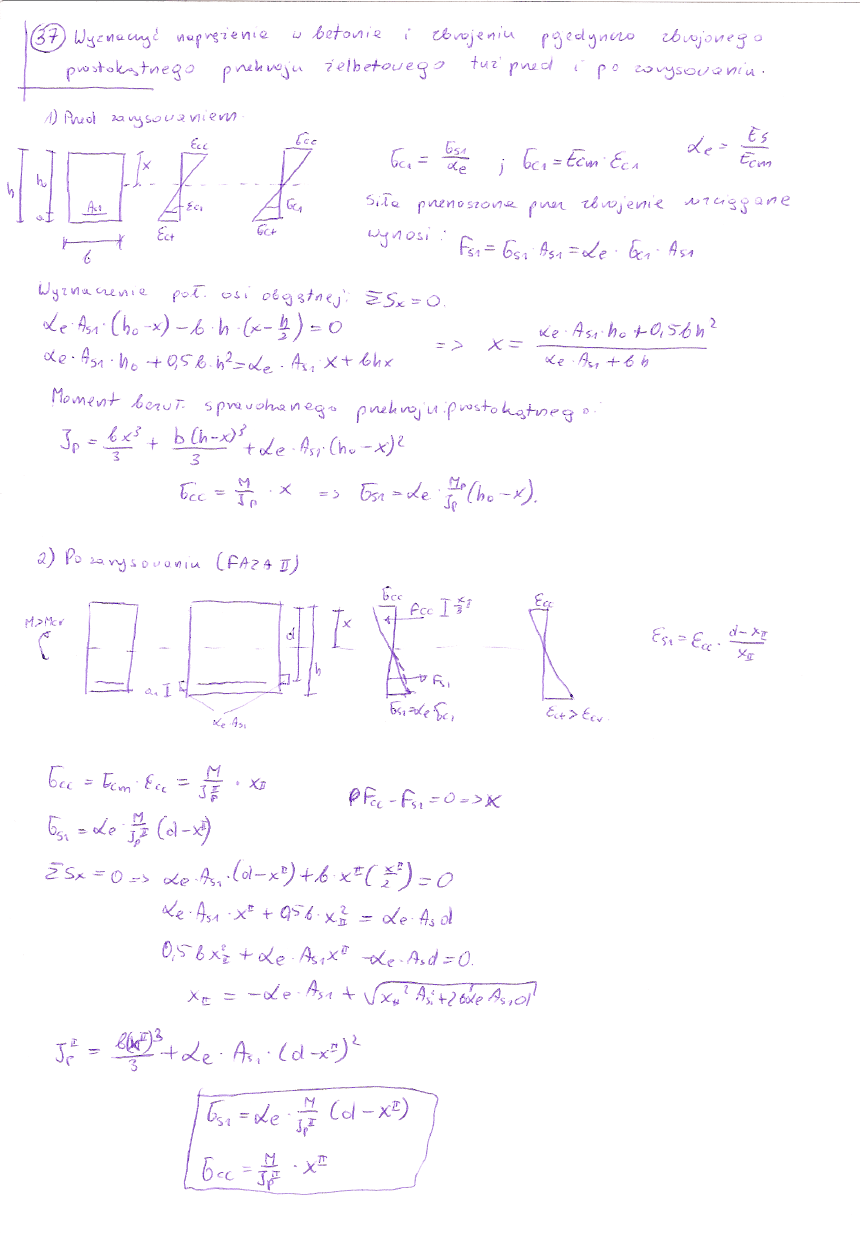 37 Wyznaczyć naprężenie w betonie i zbrojeniu pojedynczo zbrojonego
prostokątnego przekroju żelbetowego tuż przed i po zarysowaniu.
1) Przed zarysowaniem
h h₀ a As1 b x
εcc εc1 εct
σcc σc1 σct
σc1 = σs1/αe ; σc1 = Ecm · εc1
αe = Es/Ecm
Siła przenoszona przez zbrojenie rozciągane
wynosi: Fs1 = σs1 · As1 = αe · σc1 · As1
Wyznaczenie poł. osi obojętnej: ΣSx = 0.
αe · As1 · (h₀-x) - b · h · (x - h/2) = 0
αe · As1 · h₀ + 0,5 b · h² = αe · As1 · x + bhx
=> x = (αe · As1 · h₀ + 0,5bh²)/(αe · As1 + bh)
Moment bezwł. sprowadzanego przekroju prostokątnego:
Jp = bx³/3 + b(h-x)³/3 + αe · As1 · (h₀-x)²
σcc = M/Jp · x => σs1 = αe · Mp/Jp (h₀-x).
2) Po zarysowaniu (FAZA II)
M>Mcr
a1 αe·As1 d h x
σcc Fcc xII/3 Fs1 σs1=αe σc1
εcc εct > εcr
εs1 = εcc · (d-xII)/xII
σcc = Ecm · εcc = M/JpII · xII
Fcc - Fs1 = 0 => x
σs1 = αe · M/JpII (d-xII)
ΣSx = 0 => αe · As1 · (d-xII) + b · xII (xII/2) = 0
αe · As1 · xII + 0,5b · xII² = αe · As d
0,5 b xII² + αe · As1 xII - αe · As d = 0.
xII = -αe · As1 +
JpII = b(xII)³/3 + αe · As1 · (d-xII)²
σs1 = αe · M/JpII (d-xII)
σcc = M/JpII · xII